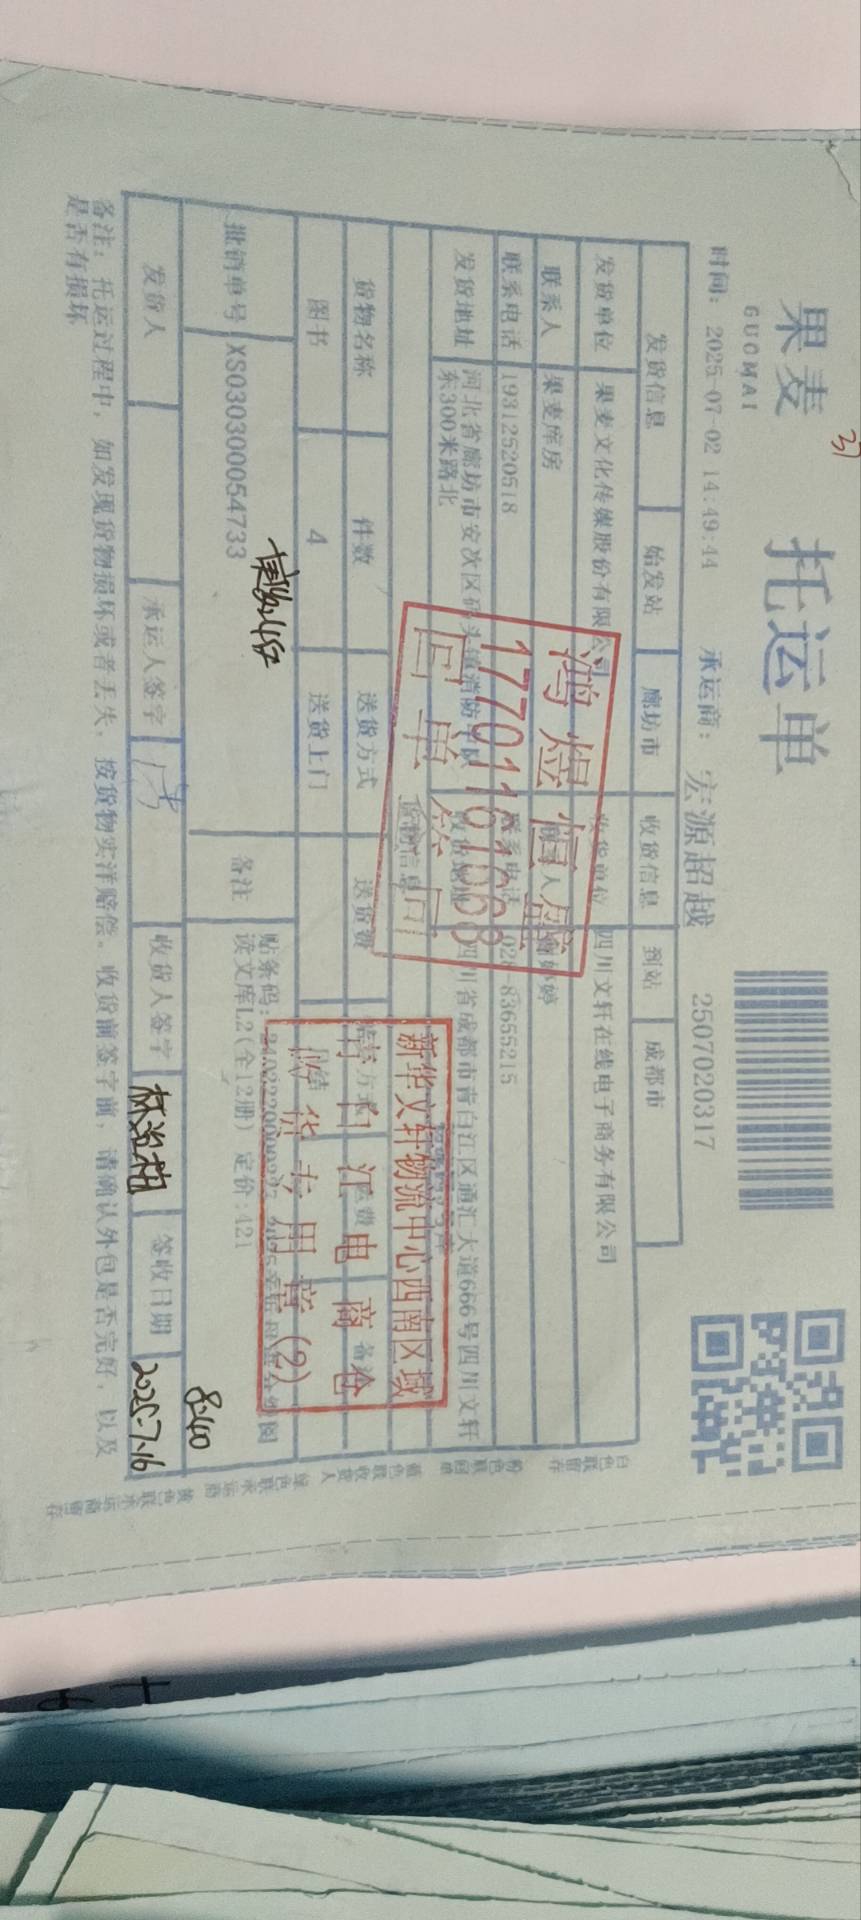 果麦
GUOMAI
托运单
时间: 2025-07-02 14:49:44 承运商: 宏源超越 2507020317
发货信息 始发站 廊坊市 收货信息 到站 成都市
发货单位 果麦文化传媒股份有限公司 收货单位 四川文轩在线电子商务有限公司
联系人 果麦库房
联系电话 19312520518 联系电话 028-83655215
发货地址 河北省廊坊市安次区码头镇消防中队东300米路北 收货地址 四川省成都市青白江区通汇大道666号四川文轩
货物信息
货物名称 件数 送货方式 送货费 运费 备注
图书 4 送货上门
批销单号 XS030300054733 备注 贴条码:
读文库L2(全12册) 定价:421
发货人 承运人签字 收货人签字 签收日期 2025-7.16
8.400
备注: 托运过程中, 如发现货物损坏或者丢失, 按货物实洋赔偿。收货前签字前, 请确认外包是否完好, 以及
是否有损坏
鸿煜恒盛
17701161998
回单签回
新华文轩物流中心西南区域
青白江电商仓
收货专用章(2)
白色联留存
粉色联回单
蓝色联收货人
绿色联承运商
黄色联承运商留存